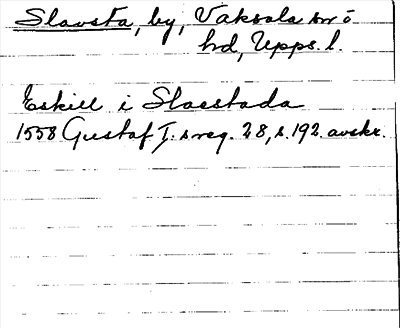 Slavsta, by, Vaksala sn o
hd, Upps. l.
Eskill i Slaestada
1558 Gustaf I. s reg. 28, s. 192. avskr.